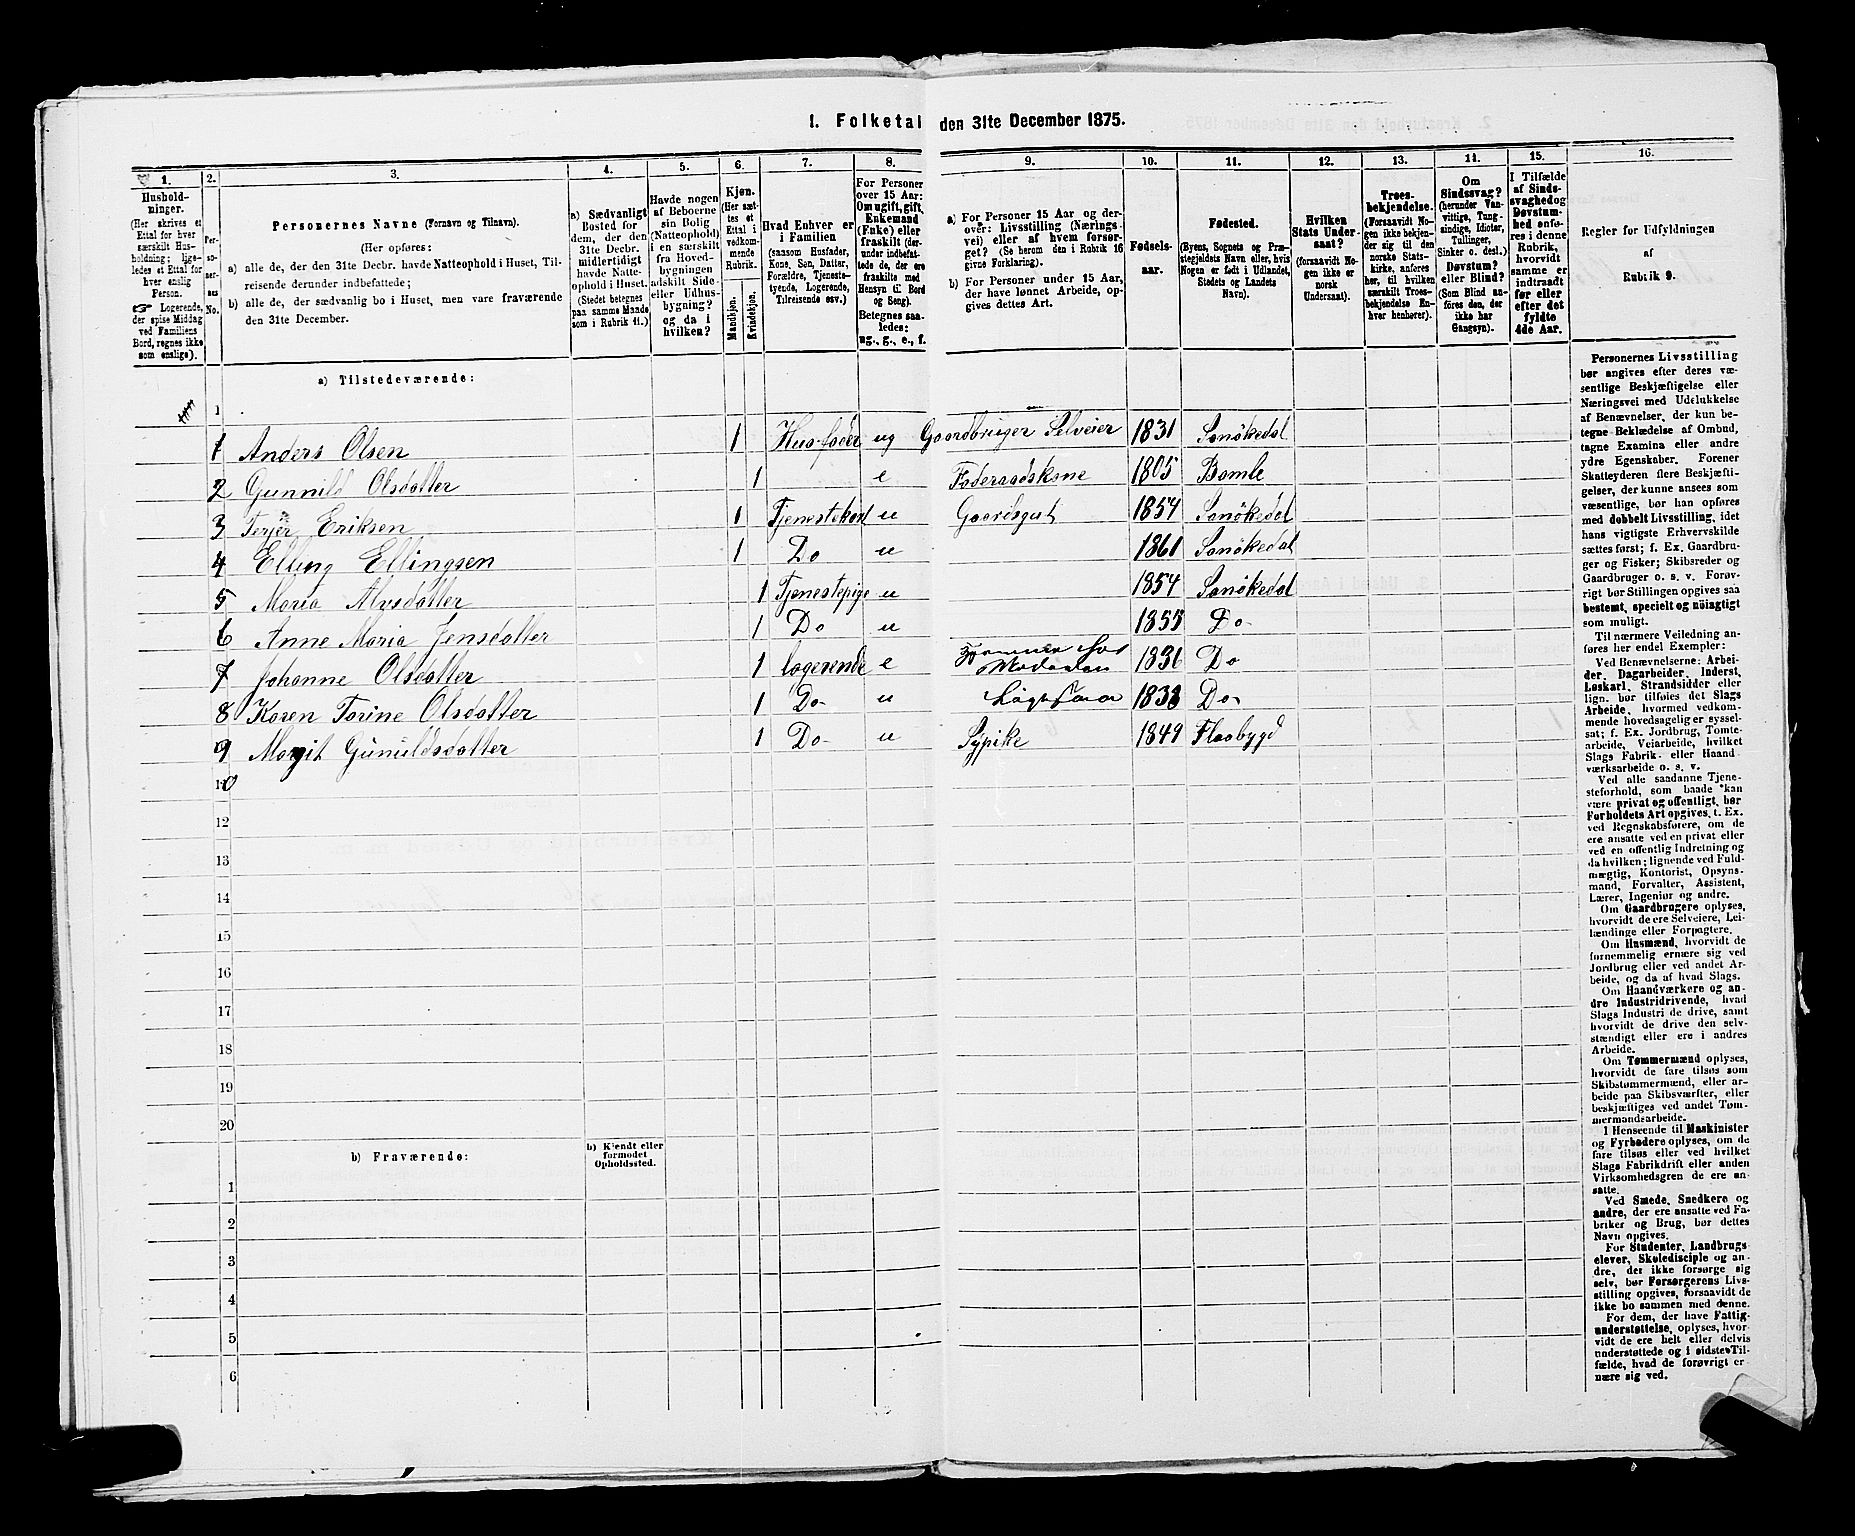 1. Folketal den 31te December 1875.
1. 2. 3. 4. 5. 6. 7. 8. 9. 10. 11. 12. 13. 14. 15. 16.
Hushold-
ninger.
(Her skrives et
Ettal for hver
særskilt Hus-
holdning; lige-
ledes et Ettal for
hver enslig
Person.
☞ Logerende,
der spise Middag
ved Familiens
Bord, regnes ikke
som enslige).
Per-
soner-
nes
No.
Personernes Navne (Fornavn og Tilnavn).
(Her opføres:
a) alle de, der den 31te Decbr. havde Natteophold i Huset, Til-
reisende derunder indbefattede;
b) alle de, der sædvanlig bo i Huset, men vare fraværende
den 31te December.
a) Sædvanligt
Bosted for
dem, der den
31te Decbr.
midlertidigt
havde Natte-
ophold i Huset.
(Stedet betegnes
paa samme Maade
som i Rubrik 11.)
Havde nogen
af Beboerne
sin Bolig
(Natteophold)
i en særskilt
fra Hoved-
bygningen
adskilt Side-
eller Udhus-
bygning?
og da i
hvilken?
Kjøn.
(Her sæt-
tes et
Ettal i
vedkom-
mende
Rubrik.
Mandkjøn.
Kvindekjøn.
Hvad Enhver er
i Familien
(saasom Husfader,
Kone, Søn, Datter,
Forældre, Tjeneste-
tyende, Logerende,
Tilreisende osv.)
For Personer
over 15 Aar:
Om ugift, gift,
Enkemand
(Enke) eller
fraskilt (der-
under indbefat-
tede de, der ere
fraskilte med
Hensyn til Bord
og Seng).
Betegnes saa-
ledes:
ug., g., e., f.
a) For Personer 15 Aar og der-
over: Livsstilling (Nærings-
vei) eller af hvem forsør-
get? (Se herom den i Rubrik 16
givne Forklaring).
b) For Personer under 15 Aar,
der have lønnet Arbeide, op-
gives dettes Art.
Fødsels-
aar.
Fødested.
(Byens, Sognets og Præ-
stegjeldets Navn eller, hvis
Nogen er født i Udlandet,
Stedets og Landets
Navn).
Hvilken
Stats Under-
saat?
(forsaavidt No-
gen ikke er
norsk
Undersaat).
Troes-
bekjendelse.
(Forsaavidt No-
gen ikke bekjen-
der sig til den
norske Stats-
kirke, anføres
her, til hvilken
særskilt Troes-
bekjendelse En-
hver henhører).
Om
Sindssvag?
(herunder Van-
vittige, Tung-
sindige, Idioter,
Tullinger,
Sinker o. desl.).
Døvstum?
eller Blind?
(Som Blind an-
føres den, der
ikke har
Gangsyn).
I Tilfælde
af Sinds-
svaghed og
Døvstum-
hed anfø-
res i denne
Rubrik,
hvorvidt
samme er
indtraadt
før eller
efter det
fyldte
4de Aar.
Regler for Udfyldningen
af
Rubrik 9.
a) Tilstedeværende:
1
1 Anders Olsen 1 Husfader ug Gaardbruger Selveier 1831 Sanökedal
2 Gunnild Olsdatter 1 e Foderaadskone 1805 Bamle
3 Terjer Eriksen 1 Tjenestekarl u Gaardsgut 1854 Sanökedal
4 Elling Ellingsen 1 Do u 1861 Sanökedal
5 Maria Alvsdatter 1 Tjenestepige u 1854 Sanökedal
6 Anne Maria Jensdatter 1 Do u 1855 Do
7 Johanne Olsdatter 1 logerende e 1836 Do
8 Karen Torine Olsdatter 1 Do u 1838 Do
9 Margit Gunuldsdatter 1 Do u Sypike 1849 Flaabygd
10
12
13
14
15
16
17
18
19
20
b) Fraværende:
b) Kjendt eller
formodet
Opholdssted.
1
2
3
4
5
6
Personernes Livsstilling
bør angives efter deres væ-
sentlige Beskjæftigelse eller
Næringsvei med Udelukkelse
af Benævnelser, der kun be-
tegne Beklædelse af Ombud,
tagne Examina eller andre
ydre Egenskaber. Forener
Skatteyderen flere Beskjæfti-
gelser, der kunne ansees som
væsentlige, bør han opføres
med dobbelt Livsstilling, idet
hans vigtigste Erhvervskilde
sættes først; f. Ex. Gaardbru-
ger og Fisker; Skibsreder og
Gaardbruger o. s. v. Forøv-
rigt bør Stillingen opgives saa
bestemt, specielt og nöiagtigt
som muligt.
Til nærmere Veiledning an-
føres her endel Exempler:
Ved Benævnelserne: Arbei-
der, Dagarbeider, Inderst,
Løskarl, Strandsidder eller
lign. bør tilføies det Slags
Arbeide, hvormed vedkom-
mende hovedsagelig er syssel-
sat; f. Ex. Jordbrug, Tomte-
arbeide, Veiarbeide, hvilket
Slags Fabrik- eller Haand
værksarbeide o. s. v.
Ved alle saadanne Tjene-
steforhold, som baade kan
være privat og offentligt, bør
Forholdets Art opgives, t. Ex.
ved Regnskabsførere, om de
ere ansatte ved en privat eller
ved en offentlig Indretning og
da hvilken; lignende ved Fuld-
mægtig, Kontorist, Opsyns-
mand, Forvalter, Assistent,
Lærer, Ingeniør og andre.
Om Gaardbrugere oplyses,
hvorvidt de ere Selveiere, Lei-
lændinge eller Forpagtere.
Om Husmænd, hvorvidt de
fornemmelig ernære sig ved
Jordbrug eller ved andet Ar-
beide, og da af hvad Slags.
Om Haandværkere og an-
dre Industridrivende, hvad
Slags Industri de drive, samt
hvorvidt de drive den selv-
stændigt eller ere i andres
Arbeide.
Om Tømmermænd oplyses,
hvorvidt de fare tilsøs som
Skibstømmermænd, eller ar-
beide paa Skibsværfter, eller
beskjæftiges ved andet Tøm-
mermandsarbeide.
I Henseende til Maskinister
og Fyrbødere oplyses, om de
fare tilsøs eller ved hvilket
Slags Fabrikdrift eller anden
Virksomhedsgren de ere an-
satte.
Ved Smede, Snedkere og
andre, der ere ansatte ved Fa-
briker og Brug, bør dettes
Navn opgives.
For Studenter, Landbrugs-
elever, Skoledisciple og an-
dre, der ikke forsørge sig
selv, bør Forsørgerens Livs-
stilling opgives, forsaavidt de
ikke bo sammen med denne.
For dem, der have Fattig-
understøttelse, oplyses, hvor-
vidt de ere helt eller delvis
understøttede og i sidste Til-
fælde, hvad de forøvrigt er-
nære sig ved.